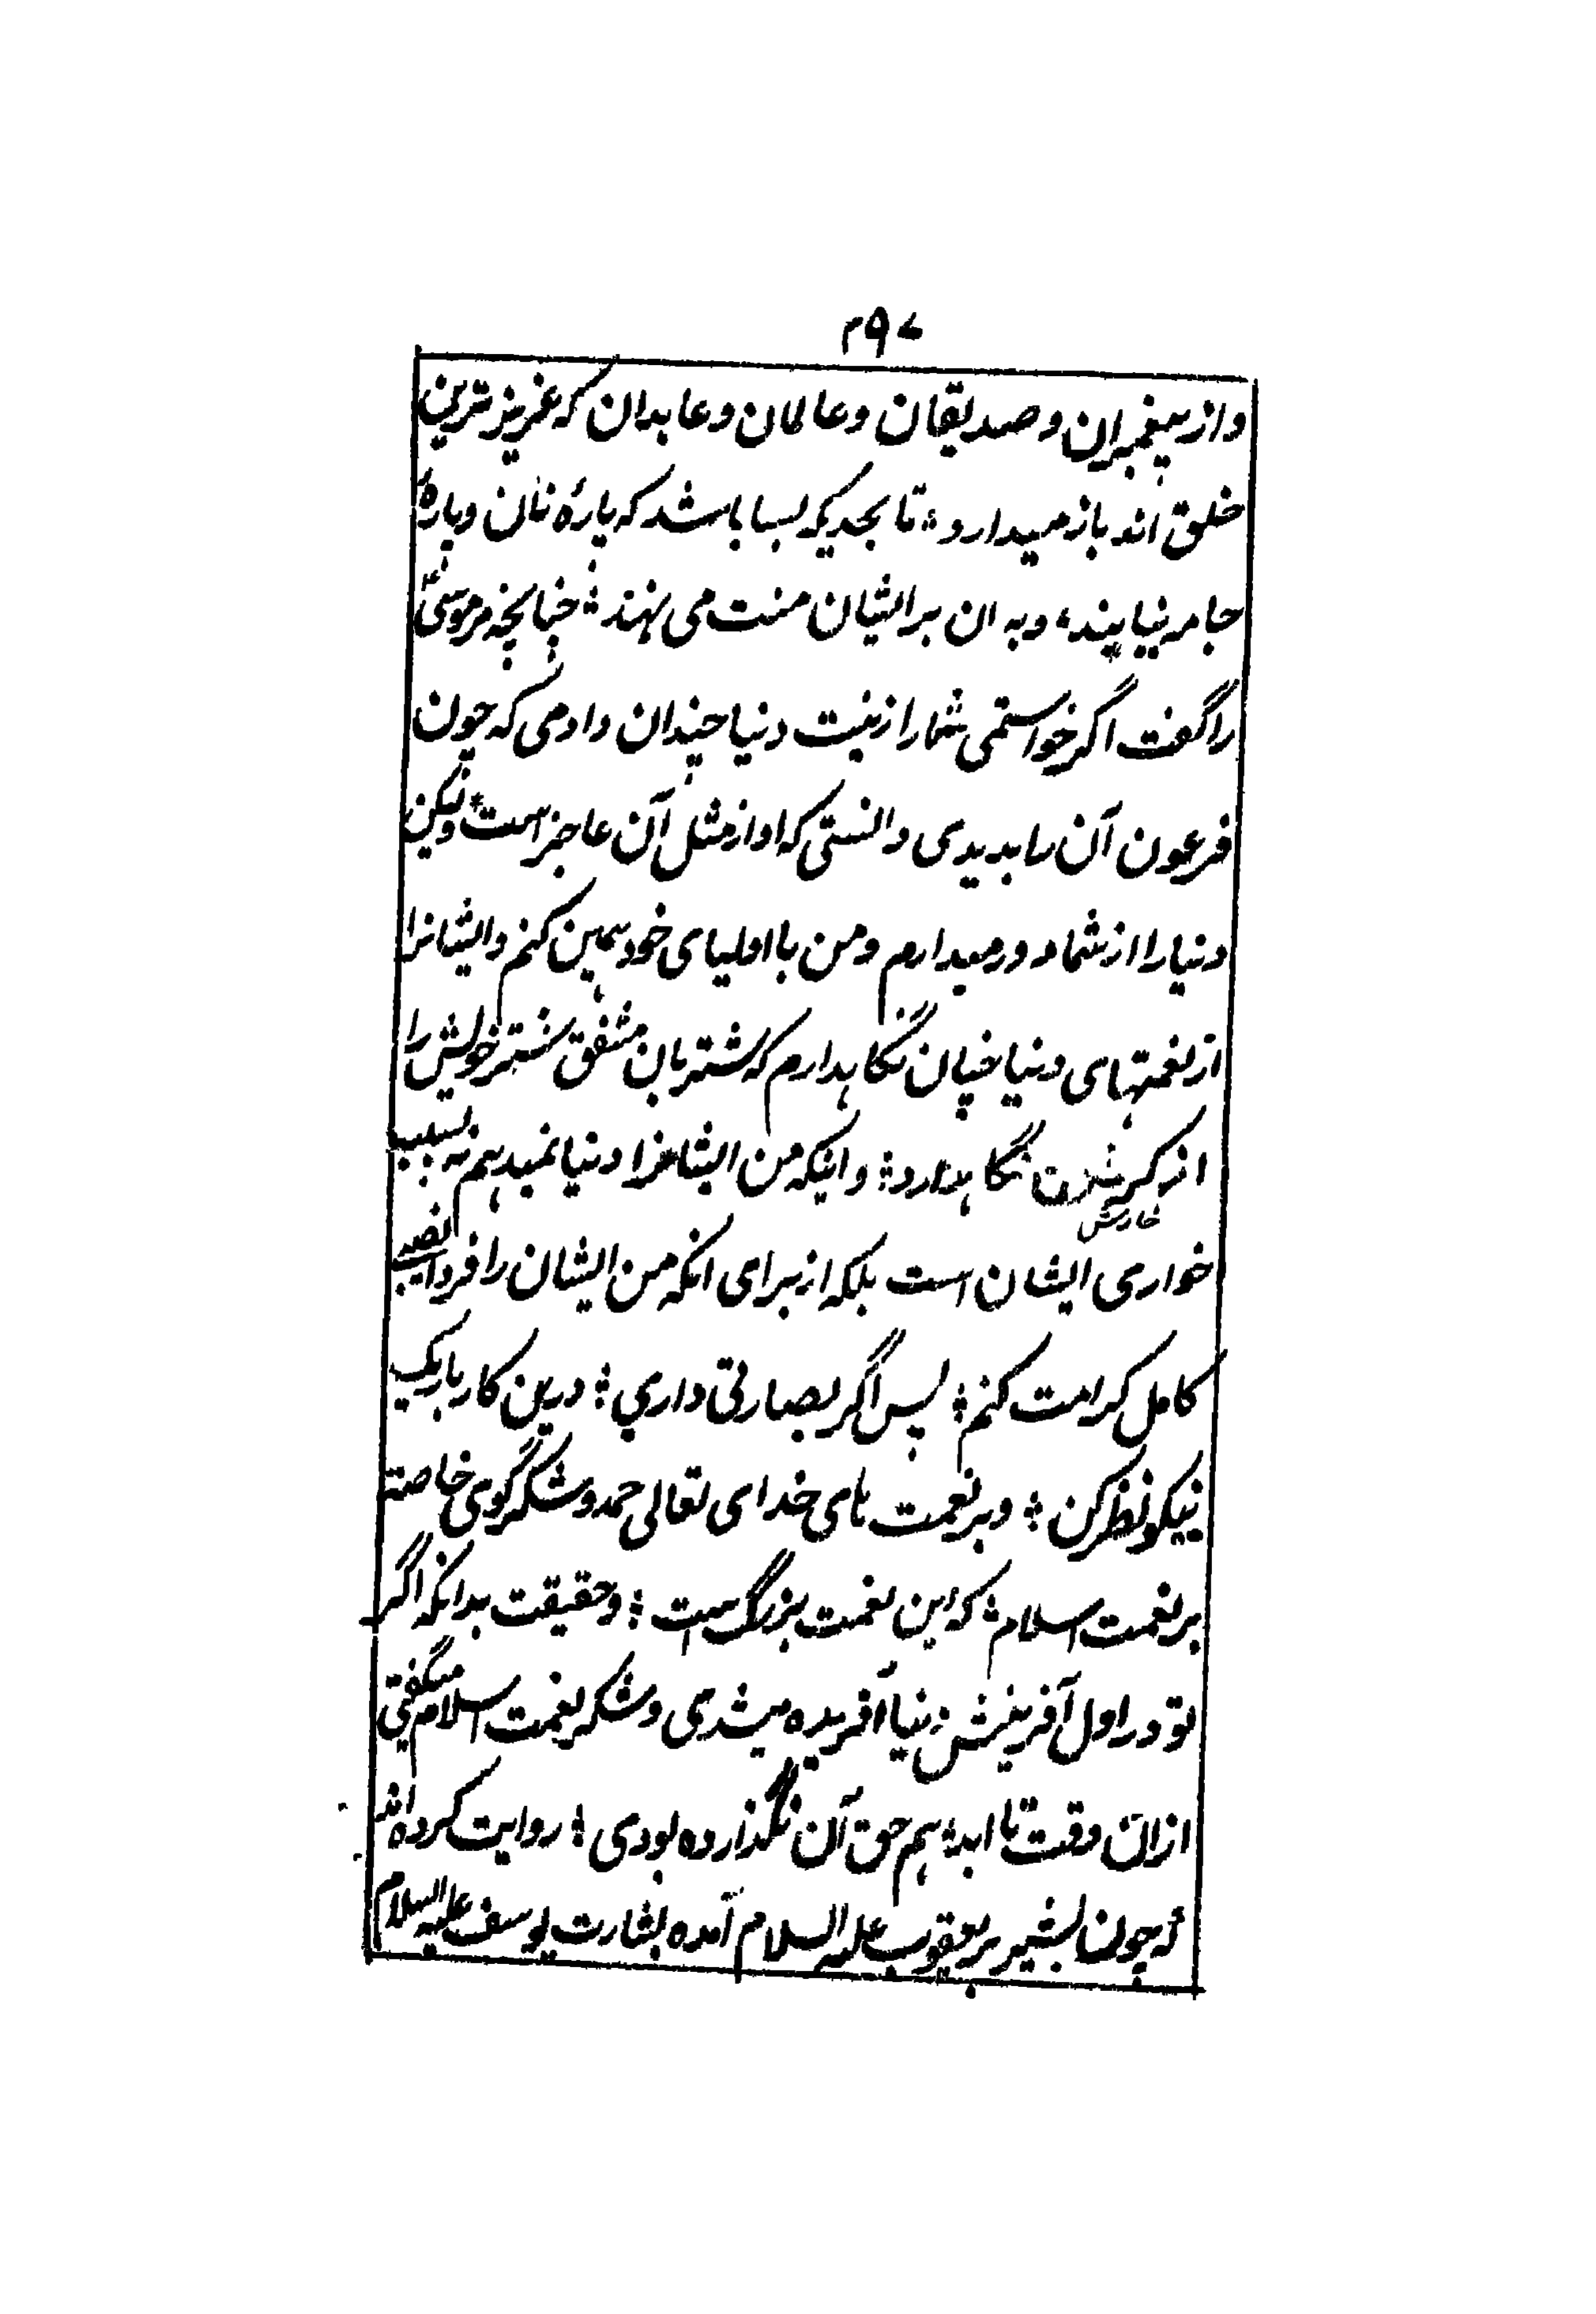 ۲۹۷
و از پیغمبران و صدیقان و عالمان و عابدان که عزیز ترین
خلق اند باز میدارد؛ تا بحدیکه بسا باشد که پارۀ نان و پارۀ
جامه نیابند، و به ان بر ایشان منت می نهند؛ چنانچه مر موسیؑ
را گفت اگر خواستمی شما را زینت دنیا چندان دادمی که چون
فرعون آن را بدیدی دانستی که او از مثل آن عاجز است ولیکن
دنیا را از شما دور میدارم و من با اولیای خود همین کنم و ایشانرا
از نعمتهای دنیا چنان نگاهدارم که شتربان مشفق شتر خویش را
از گر شدن نگاهدارد؛ و اینکه من ایشانرا دنیا نمیدهم نه بسبب
خارش
خواری ایشان است بلکه از برای انکه من ایشان را فردا نصیب
کامل کرامت کنم؛ پس اگر بصارتی داري؛ درین کار باریک
نیکو نظر کن؛ و بر نعمت های خدای تعالی حمد و شکر گوی خاصته
بر نعمت اسلام؛ که این نعمت بزرگ است؛ و حقیقت بدانکه اگر
تو در اول آفرینش دنیا آفریده میشدی و شکر نعمت اسلام میگفتی
ازان وقت تا ابد؛ هم حق آن نگذارده بودی؛ روایت کرده اند
که چون بشیر بر یعقوب علیه السلام آمده بشارت یوسف علیه السلام